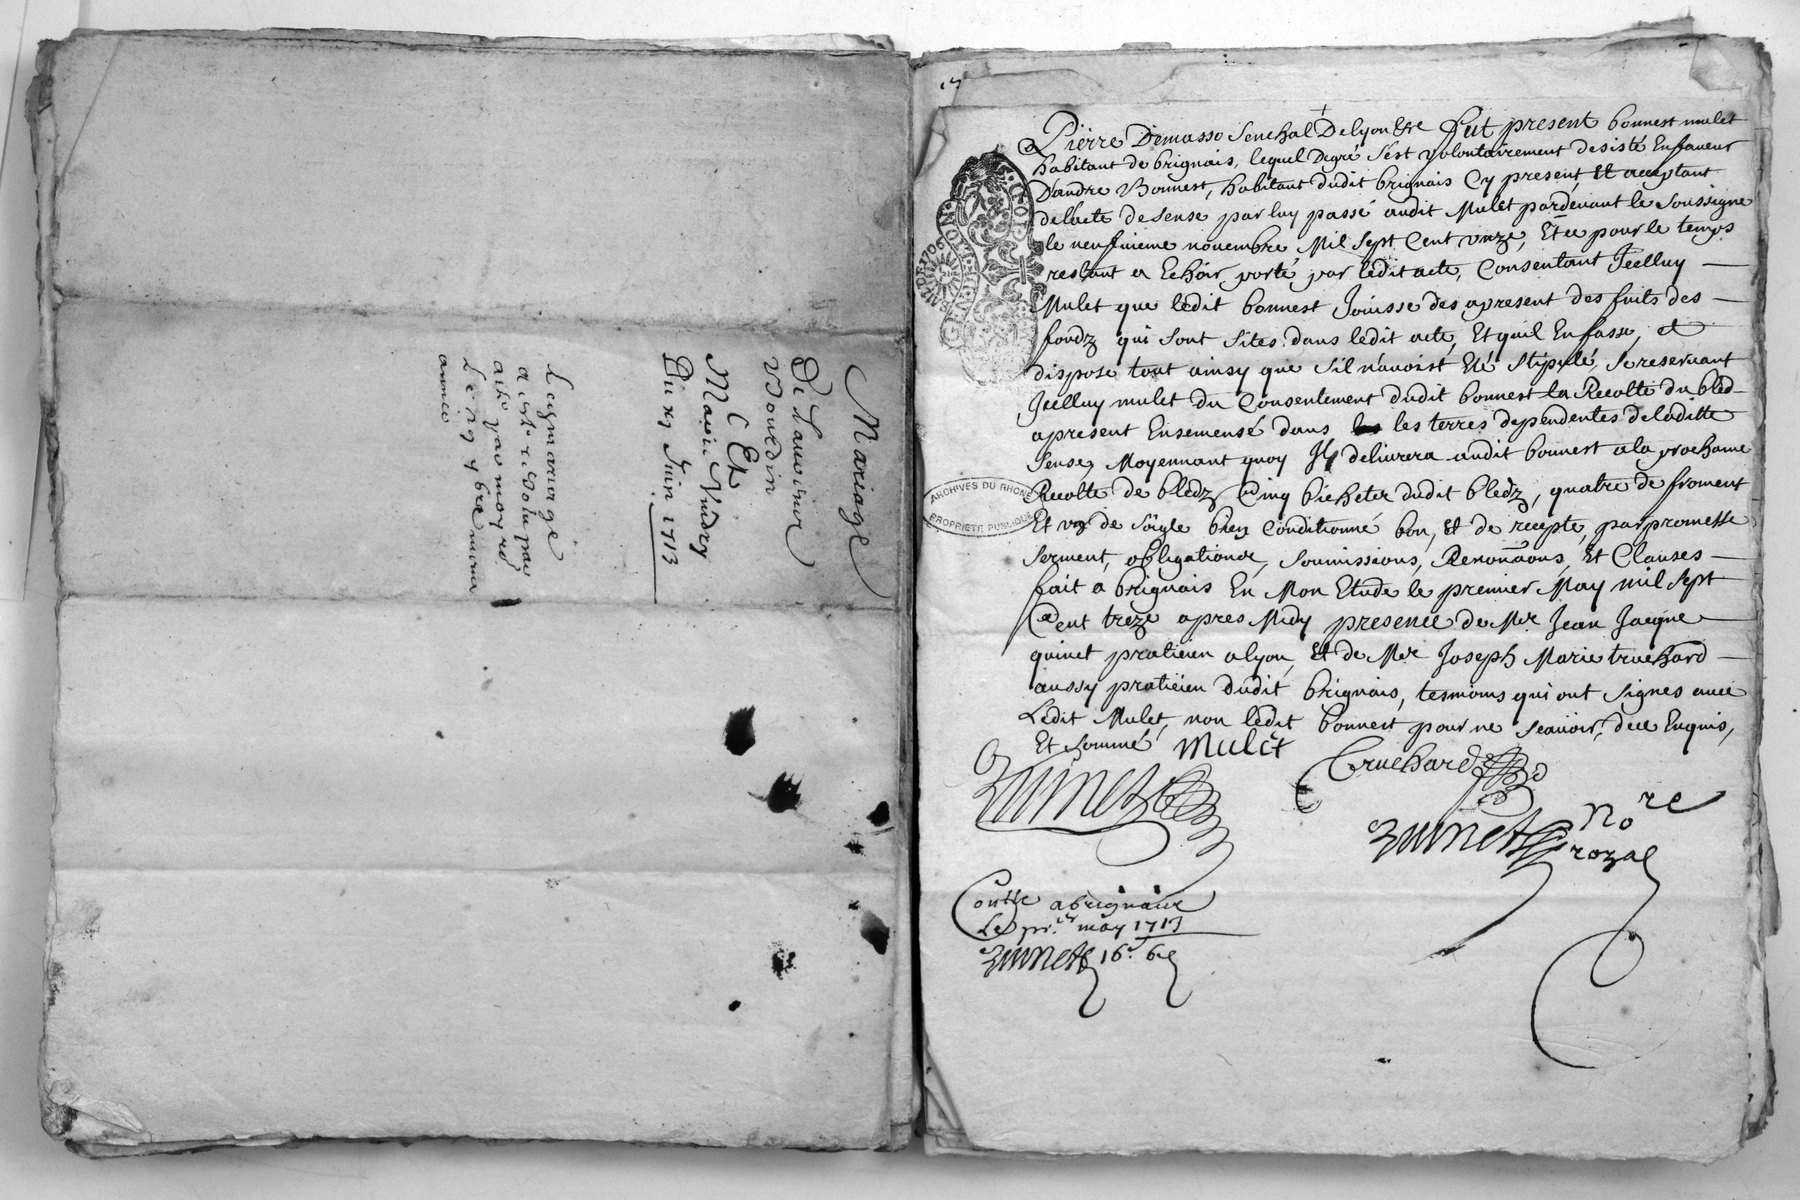 Mariage
De Lauoiheur
Bourdin
Et
Marie Vindry
Du xi Juin 1713
Le iiij mariage
a esté resolu par
acte par moy recu
Le iiij 9bre mesme
année
Pierre Demasso Senechal De lyon &re fut present bonnest mulet
habitant de brignais, lequel Degré s'est volontairement desisté En faueur
D'andre Bonnest, habitant dudit brignais Cy present, Et acceptant
de l'acte de sense par luy passé audit Mulet pardeuant le soussigne
le neufvieme nouembre Mil Sept Cent vnze, Et ce pour le temps
restant a Echoir porté par ledit acte, Consentant Jcelluy
Mulet que ledit bonnest Jouisse des apresent des fuits des
fondz qui sont sites dans ledit acte, Et quil En fasse, et
dispose tout ainsy que s'il n'auoist Eté stipulé, se reseruant
Jcelluy mulet du Consentement dudit bonnest la Recolte du bled
apresent Ensemensé dans les terres dependentes de laditte
Sense, Moyennant quoy Jl deliurera audit bonnest a la prochaine
Recolte de bledz Cinq bichetz dudit bledz, quatre de froment
Et vng de soigle bien Conditionné bon, Et de recepte, par promesse
serment, obligations, soumissions, Renonãons, Et Clauses
fait a brignais En Mon Etude le premier May mil sept
Cent treze apres Midy presence de Mer Jean Jacque
quinet praticien a lyon, Et de Mer Joseph Marie truchard
aussy praticien dudit brignais, tesmoins qui ont signes auec
Ledit Mulet, non ledit bonnest pour ne scauoir, de ce Enquis,
Et sommé mulet
quinet
truchard
quinet nore
royal
Contlle a brignais
Le pr.ier may 1713
quinet
ARCHIVES DU RHONE
PROPRIETE PUBLIQUE